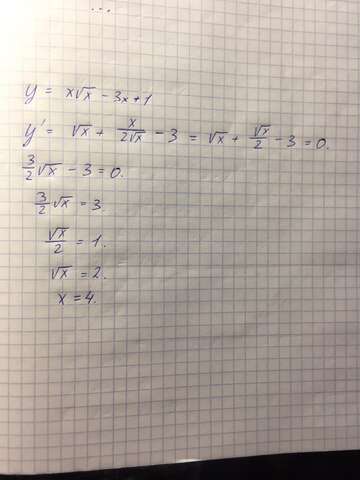 y = x√x - 3x + 1
y' = √x + x/2√x - 3 = √x + √x/2 - 3 = 0.
3/2 √x - 3 = 0.
3/2 √x = 3.
√x/2 = 1.
√x = 2.
x = 4.